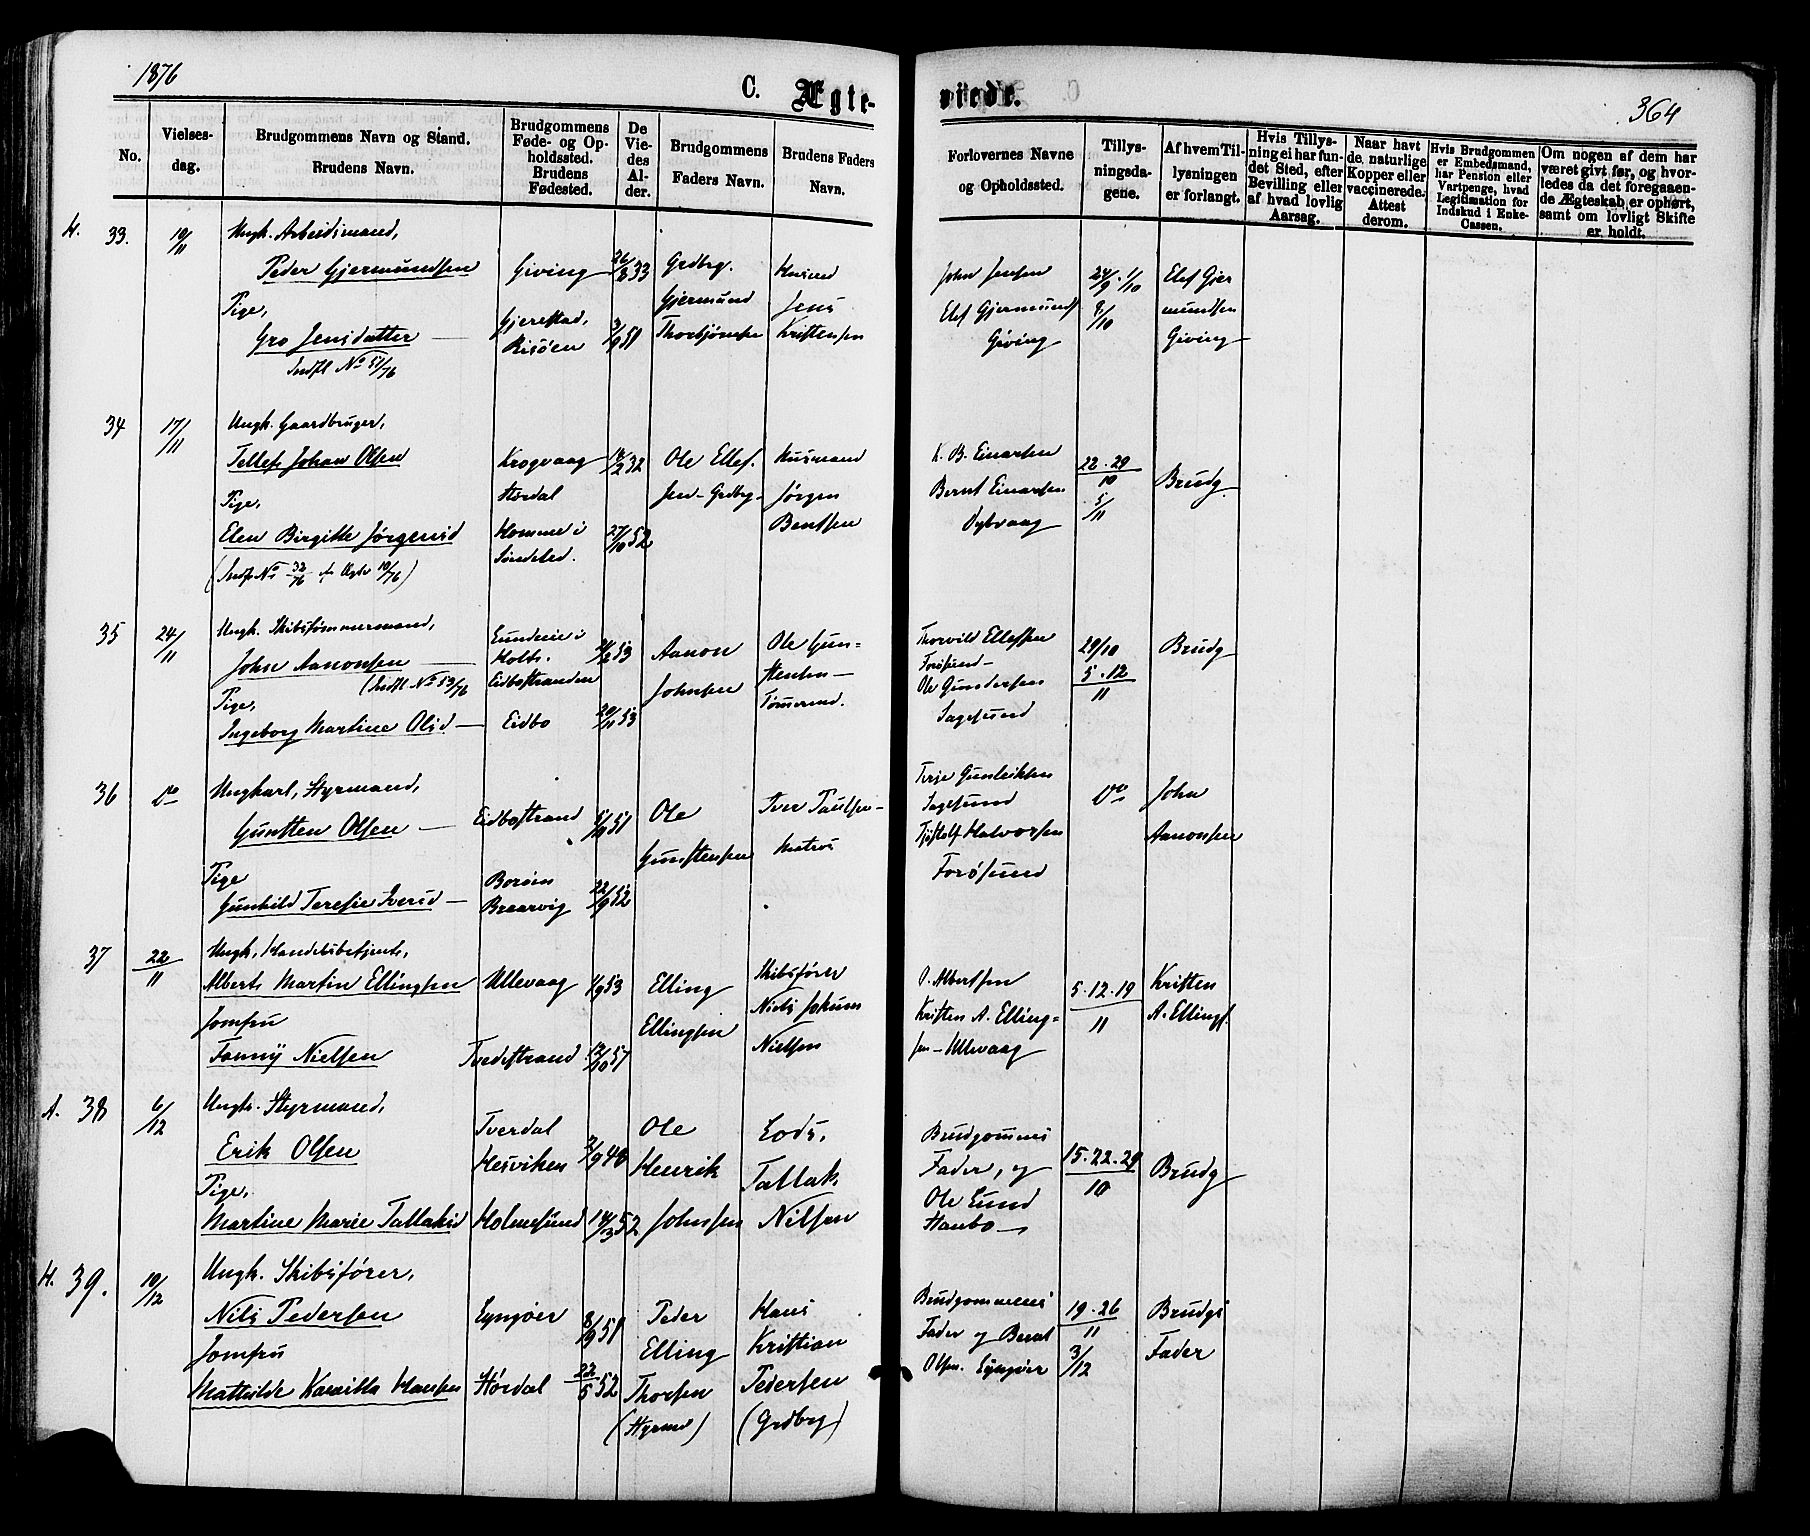 1876
C. Ægte-viede.
364
No.
Vielses-dag.
Brudgommens Navn og Stand.
Brudens Navn.
Brudgommens Føde- og Opholdssted.
Brudens Fødested.
De Viedes Alder.
Brudgommens Faders Navn.
Brudens Faders Navn.
Forlovernes Navne og Opholdssted.
Tillysningsdagene.
Af hvem Tillysningen er forlangt.
Hvis Tillysning ei har fundet Sted, efter Bevilling eller af hvad lovlig Aarsag.
Naar havt de naturlige Kopper eller vaccinerede. Attest derom.
Hvis Brudgommen er Embedsmand, har Pension eller Vartpenge, hvad Legitimation for Indskud i Enke-Cassen.
Om nogen af dem har været givt før, og hvorledes da det foregaaende Ægteskab er ophørt, samt om lovligt Skifte er holdt.
H. 33. 10/11 Ungk. Arbeidsmand,
Peder Gjermundsen Giving 26/8 33 Grdbrg. Husmd John Jensen 24/9 1/10 Elef Gjer
Pige, Gjerestad, Gjermund Jens Elef Gjermunds 8/10 mundsen
Gro Jensdatter Risöen 3/9 51 Thorbjörnsen Kristensen Giving Giving
Indfl No 51/76
34 17/11 Ungk. Gaardbruger,
Tellef Johan Olsen Krogvaag 14/2 32 Ole Ellef. Husmand K. B. Einarsen 22.29/10 Brudg.
Pige, Hördal sen - Grdbrg. Jörgen Bernt Einarsen 5/11
Elen Birgitte Jörgensd Homme i 27/10 52 Bentsen Dybvaag
Söndeled.
(Indfl No 32/76 10/76)
35 24/11 Ungk. Skibstömmermand, Lundeie i
John Aanonsen Holts. 2 53 Aanon Ole Gun= Thorvild Ellefsen 29/10 Brudg
(Indfl. No 53/76 Eidbostranden Johnsen stensen - Forösund - 5.12/11
Pige, Tömermd. Ole Gundersen
Ingeborg Martine Olsd Eidbo 20/11 53 Sagesund
36 Do Ungkarl, Styrmand,
Gunsten Olsen Eidbostrand 9 51 Ole Iver Paulsen - Terje Gunleiksen Do John
Gunstensen Matros Sagesund Aanonsen
Pige Boröen Tjöstolf Halvorsen
Gunhild Teresie Iversd Braarvig 22/9 52 Forösund
37 22/11 Ungk. Handelsbetjent,
Albert Martin Ellingsen Ullevaag 9 53 Elling Skibsförer O. Albertsen 5.12.19/11 Kristen
Jomfru Ellingsen Niels Jokum Kristen A. Elling= A. Ellings.
Fanny Nielsen Tvedestrand 12/10 57 Nielsen sen - Ullevaag
A. 38 6/12 Ungk. Styrmand,
Erik Olsen Tverdal 2/9 48 Ole Lods, Brudgommens 15.22.29/10 Brudg
Pige, Hesviken Henrik Tallak Fader, og
Martine Marie Tallaksd Holmesund 14/3 52 Johnsen Nilsen Ole Lund
Staubo
H. 39. 10/12 Ungk. Skibsförer,
Nils Pedersen Lyngöer 8/9 51 Peder Hans Brudgommens 19.26/11 Brudgs
Jomfru Elling Kristian Fader og Bernt 3/12 Fader
Mathilde Hansen Hördal 22/5 52 Thorsen Pedersen Olsen. Lyngöer
(Styrmd) (Grdbrg)